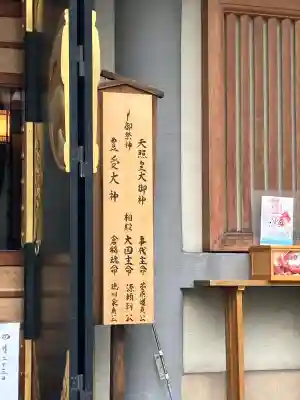 御祭神
天照皇大御神
豊受大神
相殿
事代主命 菅原道真公
大国主命 源頼朝公
倉稲魂命 徳川家康公